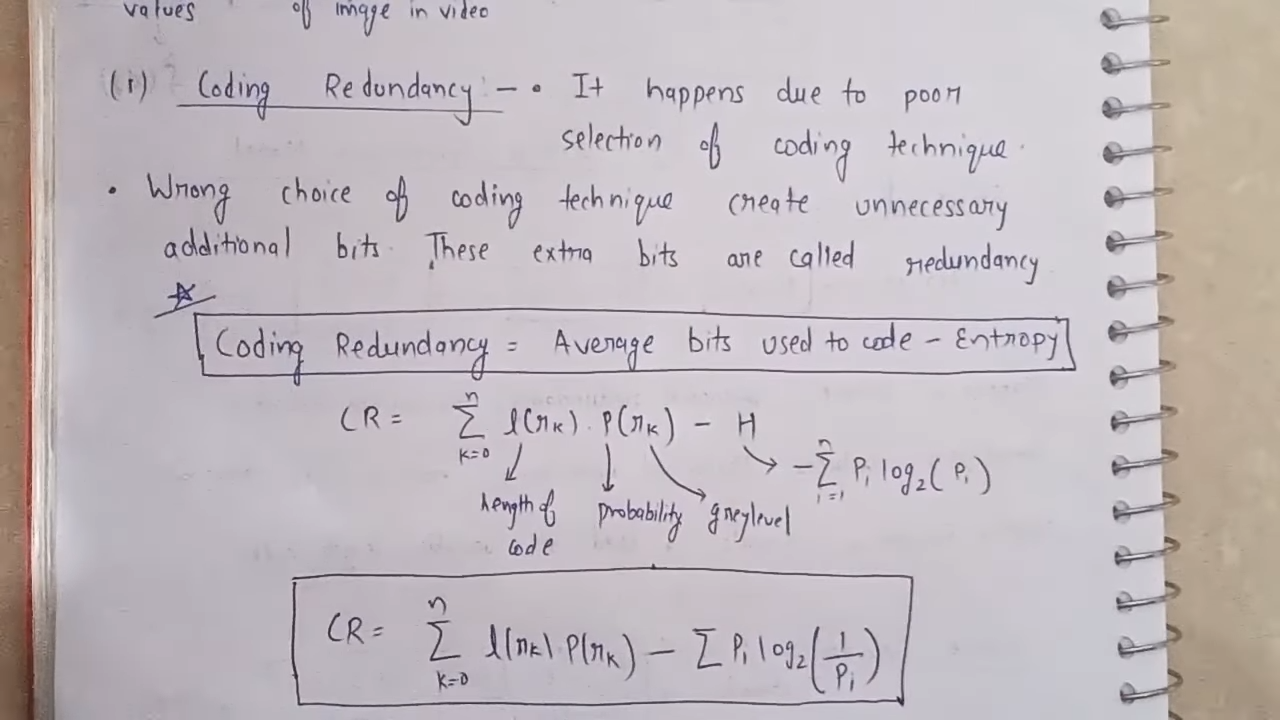 values of image in video
(i) Coding Redundancy - • It happens due to poor
selection of coding technique.
• Wrong choice of coding technique create unnecessary
additional bits. These extra bits are called redundancy
Coding Redundancy = Average bits used to code - Entropy
CR = n Σ k=0 l(rₖ) . P(rₖ) - H
→ - n Σ i=1 Pᵢ log₂(Pᵢ)
Length of code
probability
greylevel
CR = n Σ k=0 l(rₖ) . P(rₖ) - Σ Pᵢ log₂(1/Pᵢ)